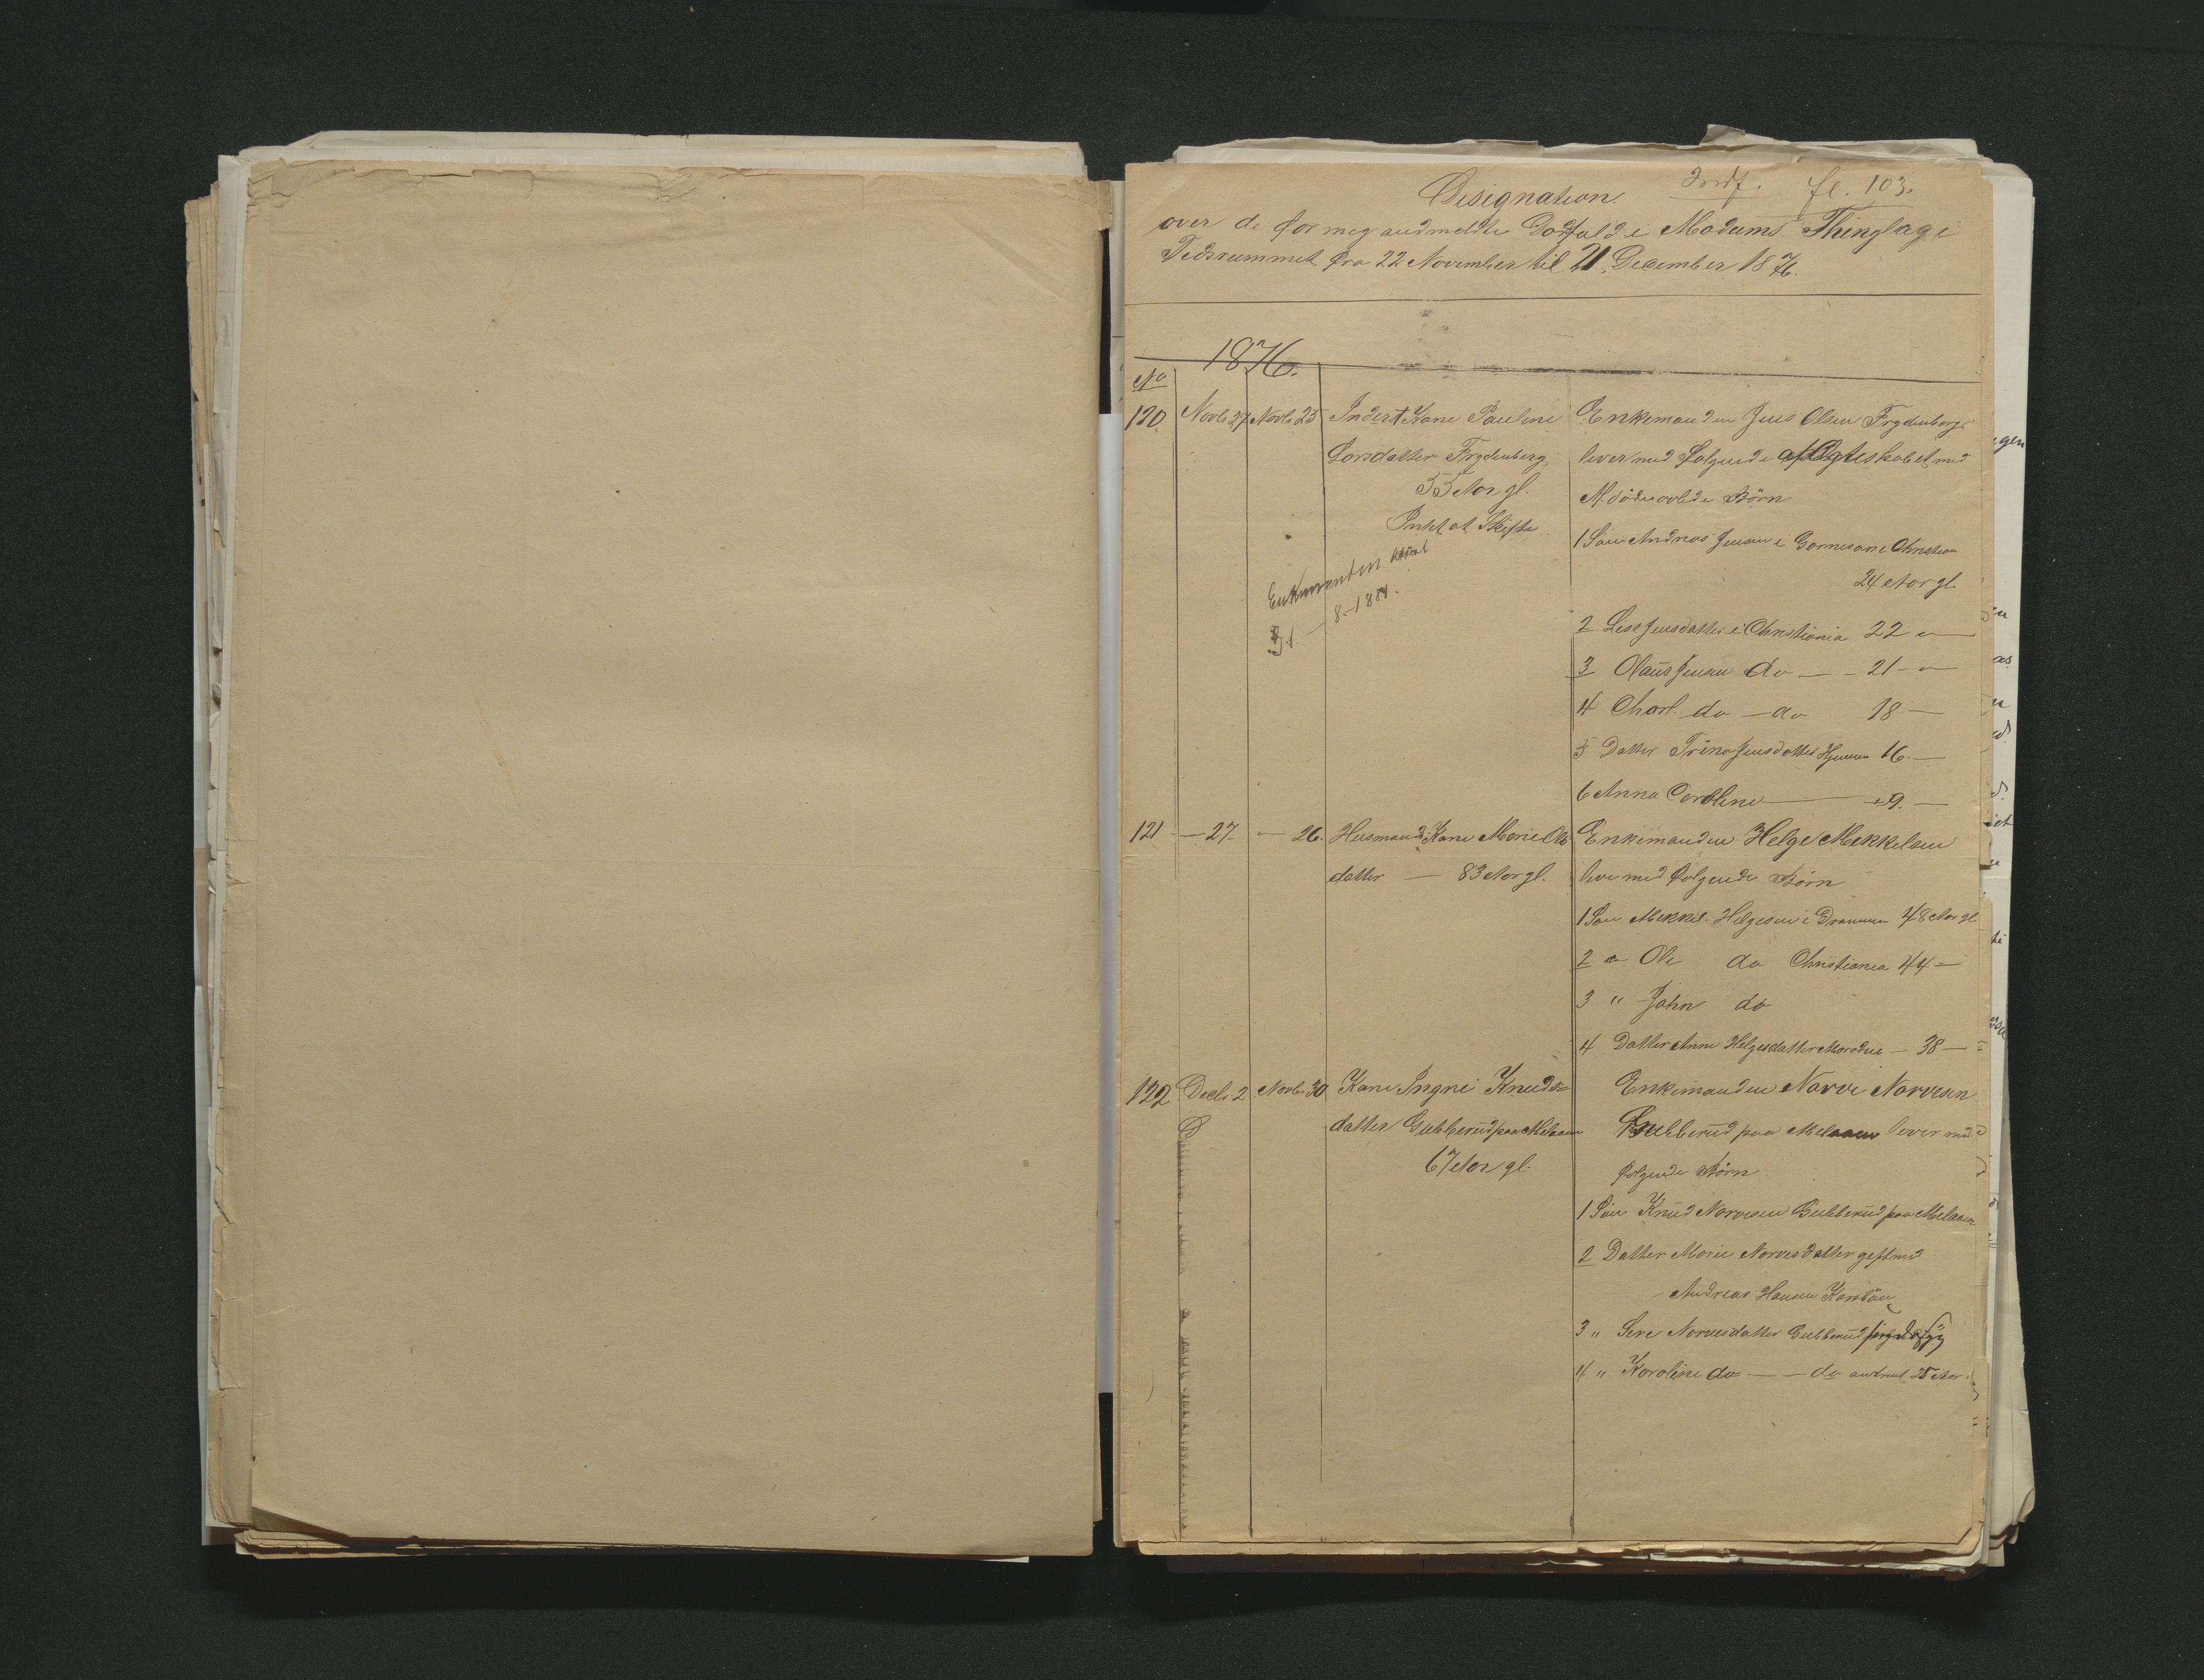 Designation
Indf. fl. 103.
over de for mig andmeldte Dødfald i Modums Thinglag i
Tidsrummet fra 22 November til 21. December 1876.
1876.
No
120 Novb. 27 Novb. 25 Inderst Kone Pauline
Larsdatter Frydenberg
55 Aar gl.
Intet at Skifte
Enkemanden
8-1884.
Enkemanden Jens Olsen Frydenberg
lever med følgende i Ægteskabet med
avlede Børn
1 Søn Andreas Jensen i Christian
24 Aar gl.
2 Lise Jensdatter i Christiania 22 "
3 Olaus Jensen do — 21 — "
4 Charl do — do 18 —
5 Datter Trina Jensdatter Hjemme 16. —
6 Anna Caroline — 9. —
121 — 27 — 26. Husmands Kone Marie Ols
datter — 83 Aar gl.
Enkemanden Helge Mekkelsen
lever med følgende Børn
1 Søn Mekkel Helgesen i Drammen 48 Aar gl.
2 " Ole do Christiania 44 —
3 " John do
4 Datter Anne Helgesdatter — 38 —
122 Decb. 2 Novb. 30 Kone Ingri Knuds=
datter Gubberud paa Melaaen
67 Aar gl.
Enkemanden Narve Narvesen
Gubberud paa Melaaen lever med
følgende Børn
1 Søn Knud Narvesen Gubberud paa Melaaen
2 Datter Marie Narvesdatter gift med
Andreas Hansen
3 " Narvesdatter Gubberud
4 " Karoline do — do 25 Aar